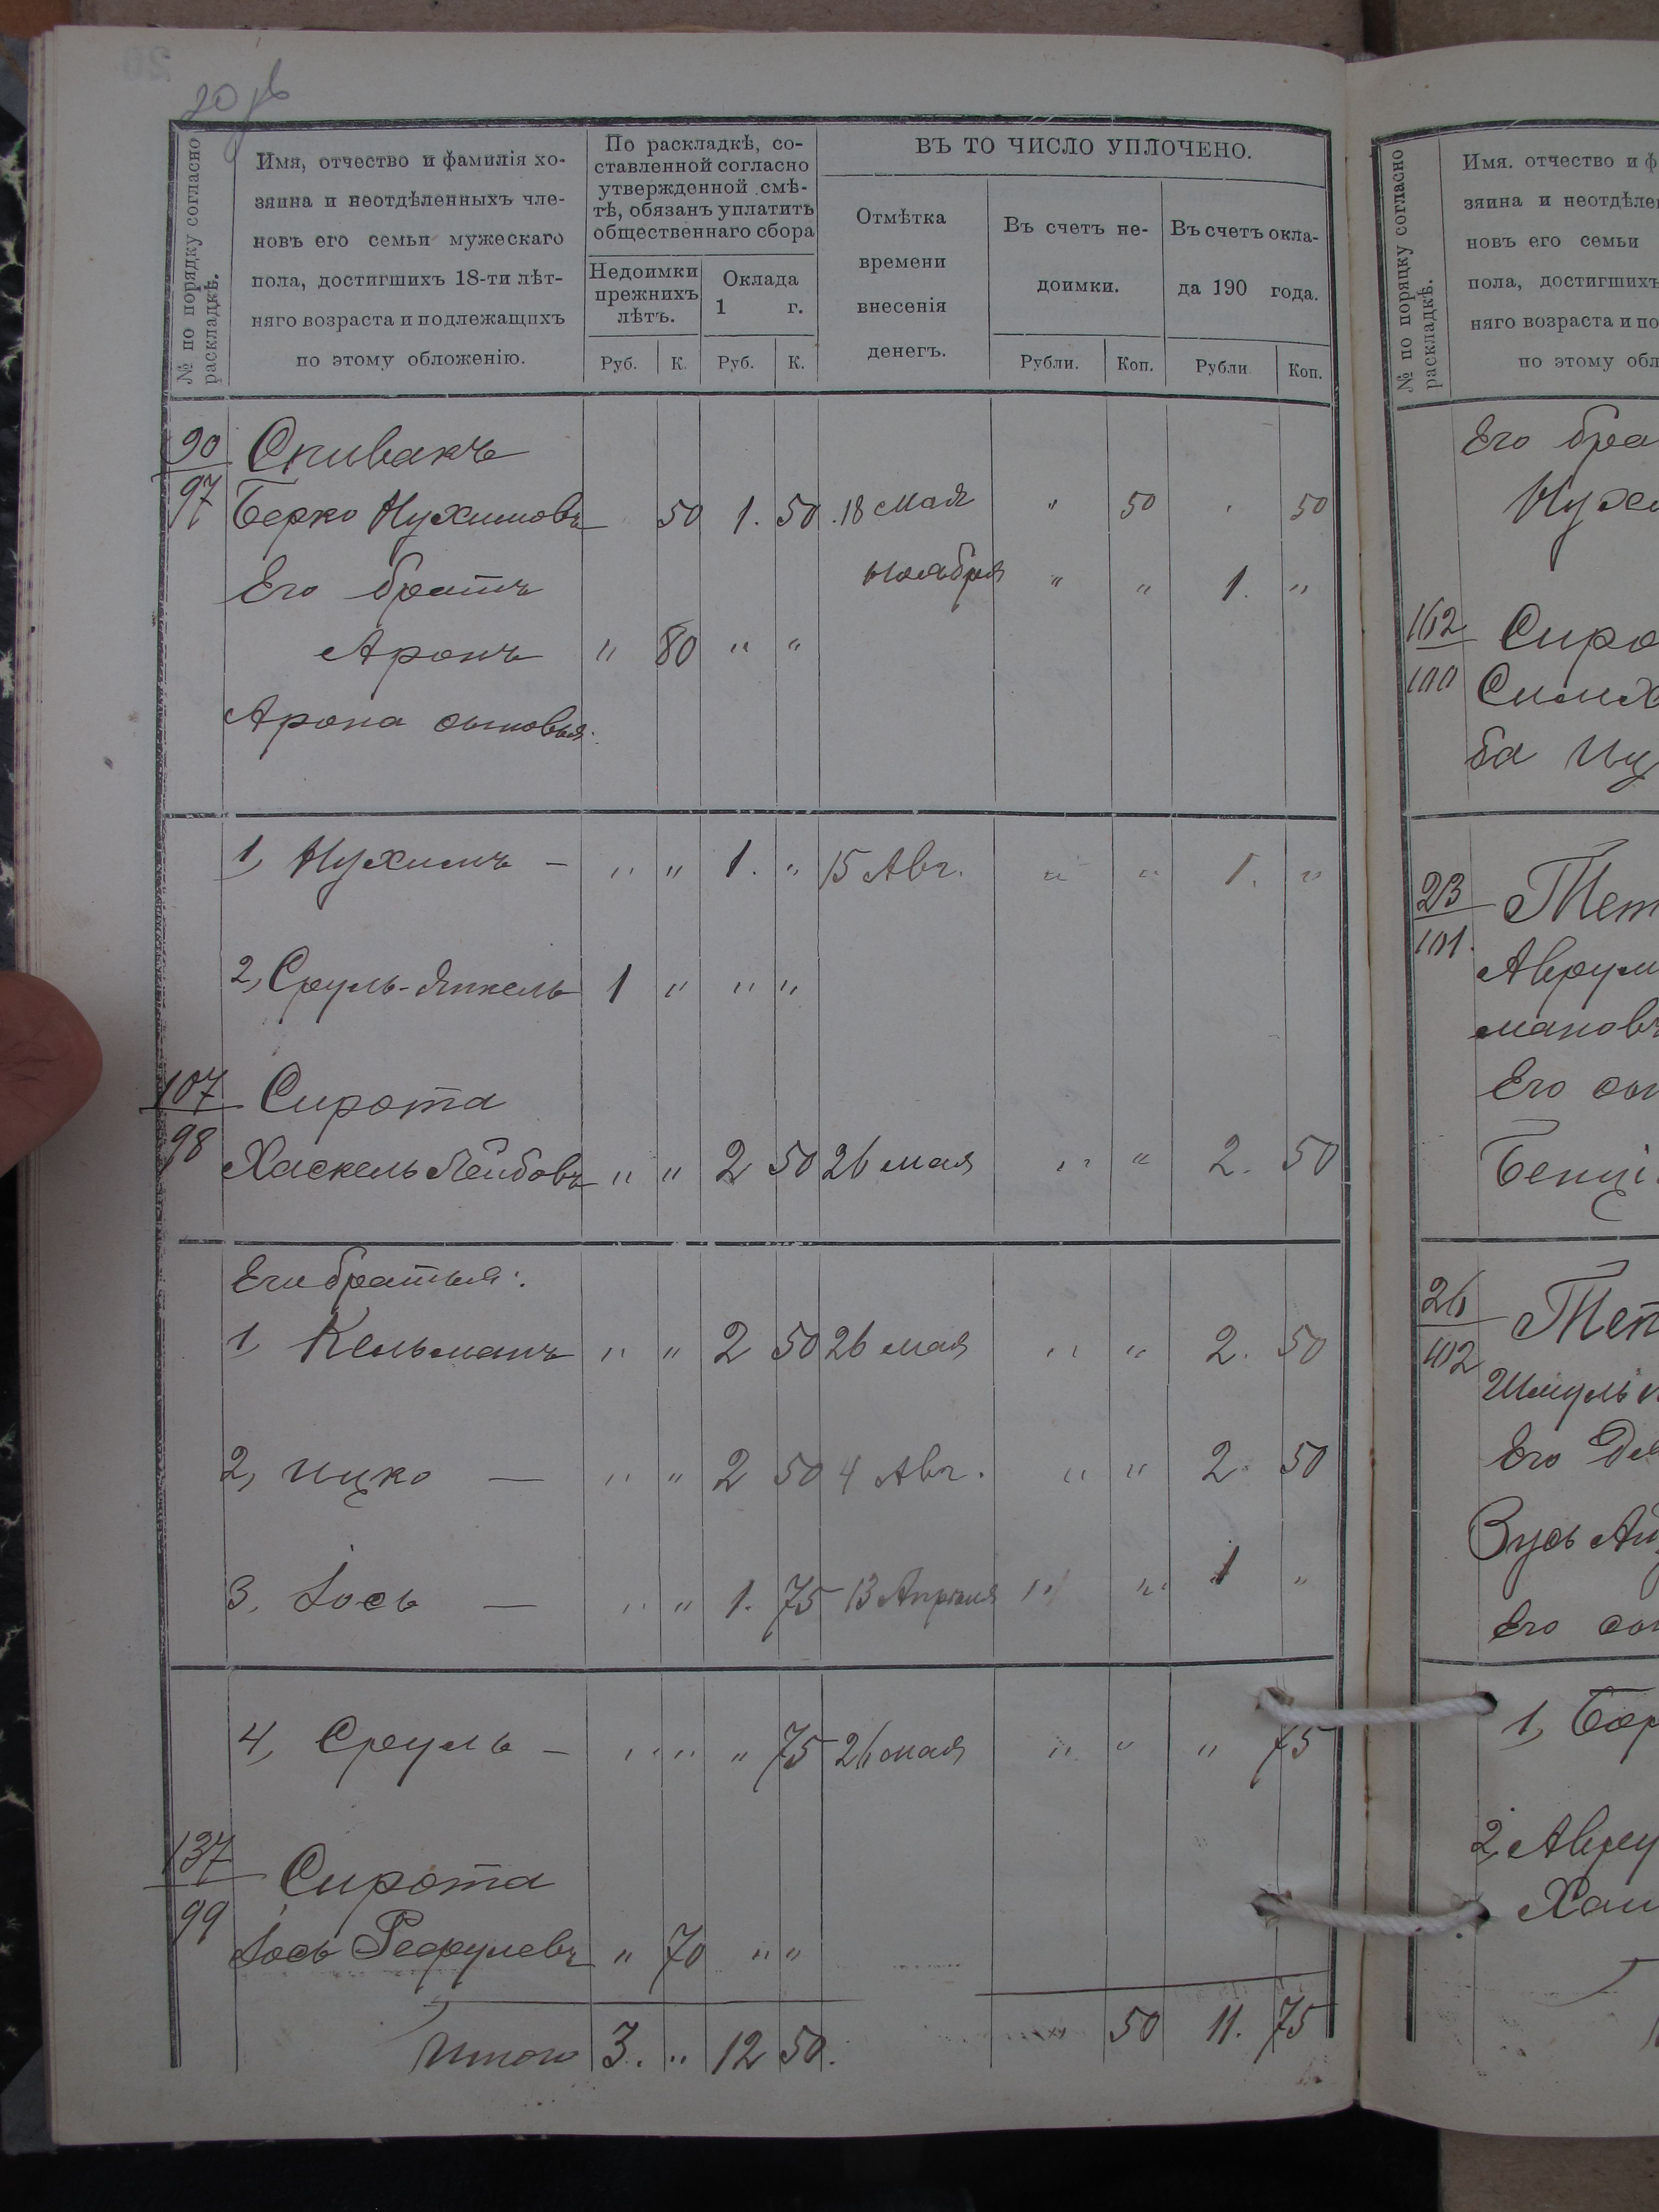 20
№ по порядку согласно раскладкѣ.
Имя, отчество и фамилія хо-
зяина и неотдѣленныхъ чле-
новъ его семьи мужескаго
пола, достигшихъ 18-ти лѣт-
няго возраста и подлежащихъ
по этому обложенію.
По раскладкѣ, со-
ставленной согласно
утвержденной смѣ-
тѣ, обязанъ уплатить
общественнаго сбора
Недоимки
прежнихъ
лѣтъ.
Оклада
1 г.
ВЪ ТО ЧИСЛО УПЛОЧЕНО.
Отмѣтка
времени
внесенія
денегъ.
Въ счетъ не-
доимки.
Въ счетъ окла-
да 190 года.
Руб. К. Руб. К. Рубли. Коп. Рубли Коп.
90 Спивакъ
97 Берко Нухимовъ 50 1. 50 18 мая " 50 . 50
Его братъ ноября " " 1. "
Аронъ " 80 " "
Арона сыновья:
1, Нухимъ — " " 1. " 15 Авг. " " 1. "
2, Сруль-Янкель 1 " " "
107 Сирота
98 Хаскель Лейбовъ " " 2 50 26 мая " " 2. 50
Его братья:
1, Кельманъ " " 2 50 26 мая " " 2. 50
2, Ицко — " " 2 50 4 Авг. " " 2 50
3, Іось — " " 1. 75 13 Апрѣля " " 1 "
4, Сруль — " " " 75 26 мая " " " 75
137 Сирота
99 Іось " 70 " "
Итого 3. " 12 50. " 50 11. 75
№ по порядку согласно раскладкѣ.
Имя. отчество и ф
зяина и неотдѣле
новъ его семьи
пола, достигшихъ
няго возраста и по
по этому обл
Его бра
Нухи
162 Сиро
100 Симх
ба Иц
23 Тет
101. Аврум
мановъ
Его сы
Бенці
26 Теп
102
Шмуль
Его
Зусь
Его сы
1, Бор
2, Авру
Хаи